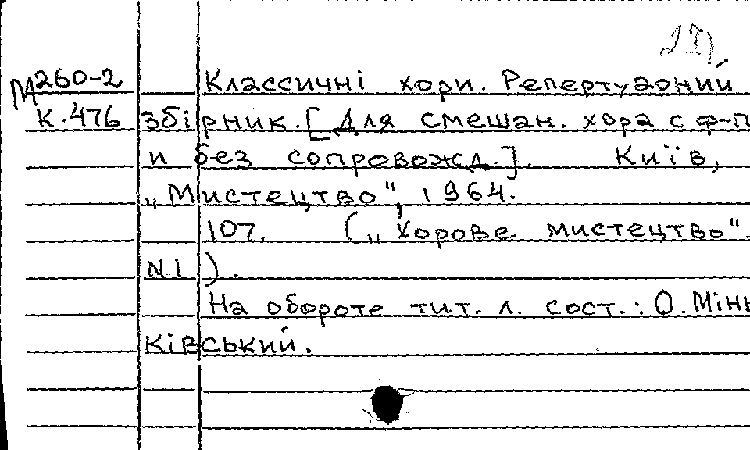 М260-2 Классичні хори. Репертуарний
К.476 збірник. [Для смешан. хора с ф-п
и без сопровожд.]. Київ,
„Мистецтво", 1964.
107. („Хорове мистецтво"
N1).
На обороте тит. л. сост.: О. Мінь
ківський.